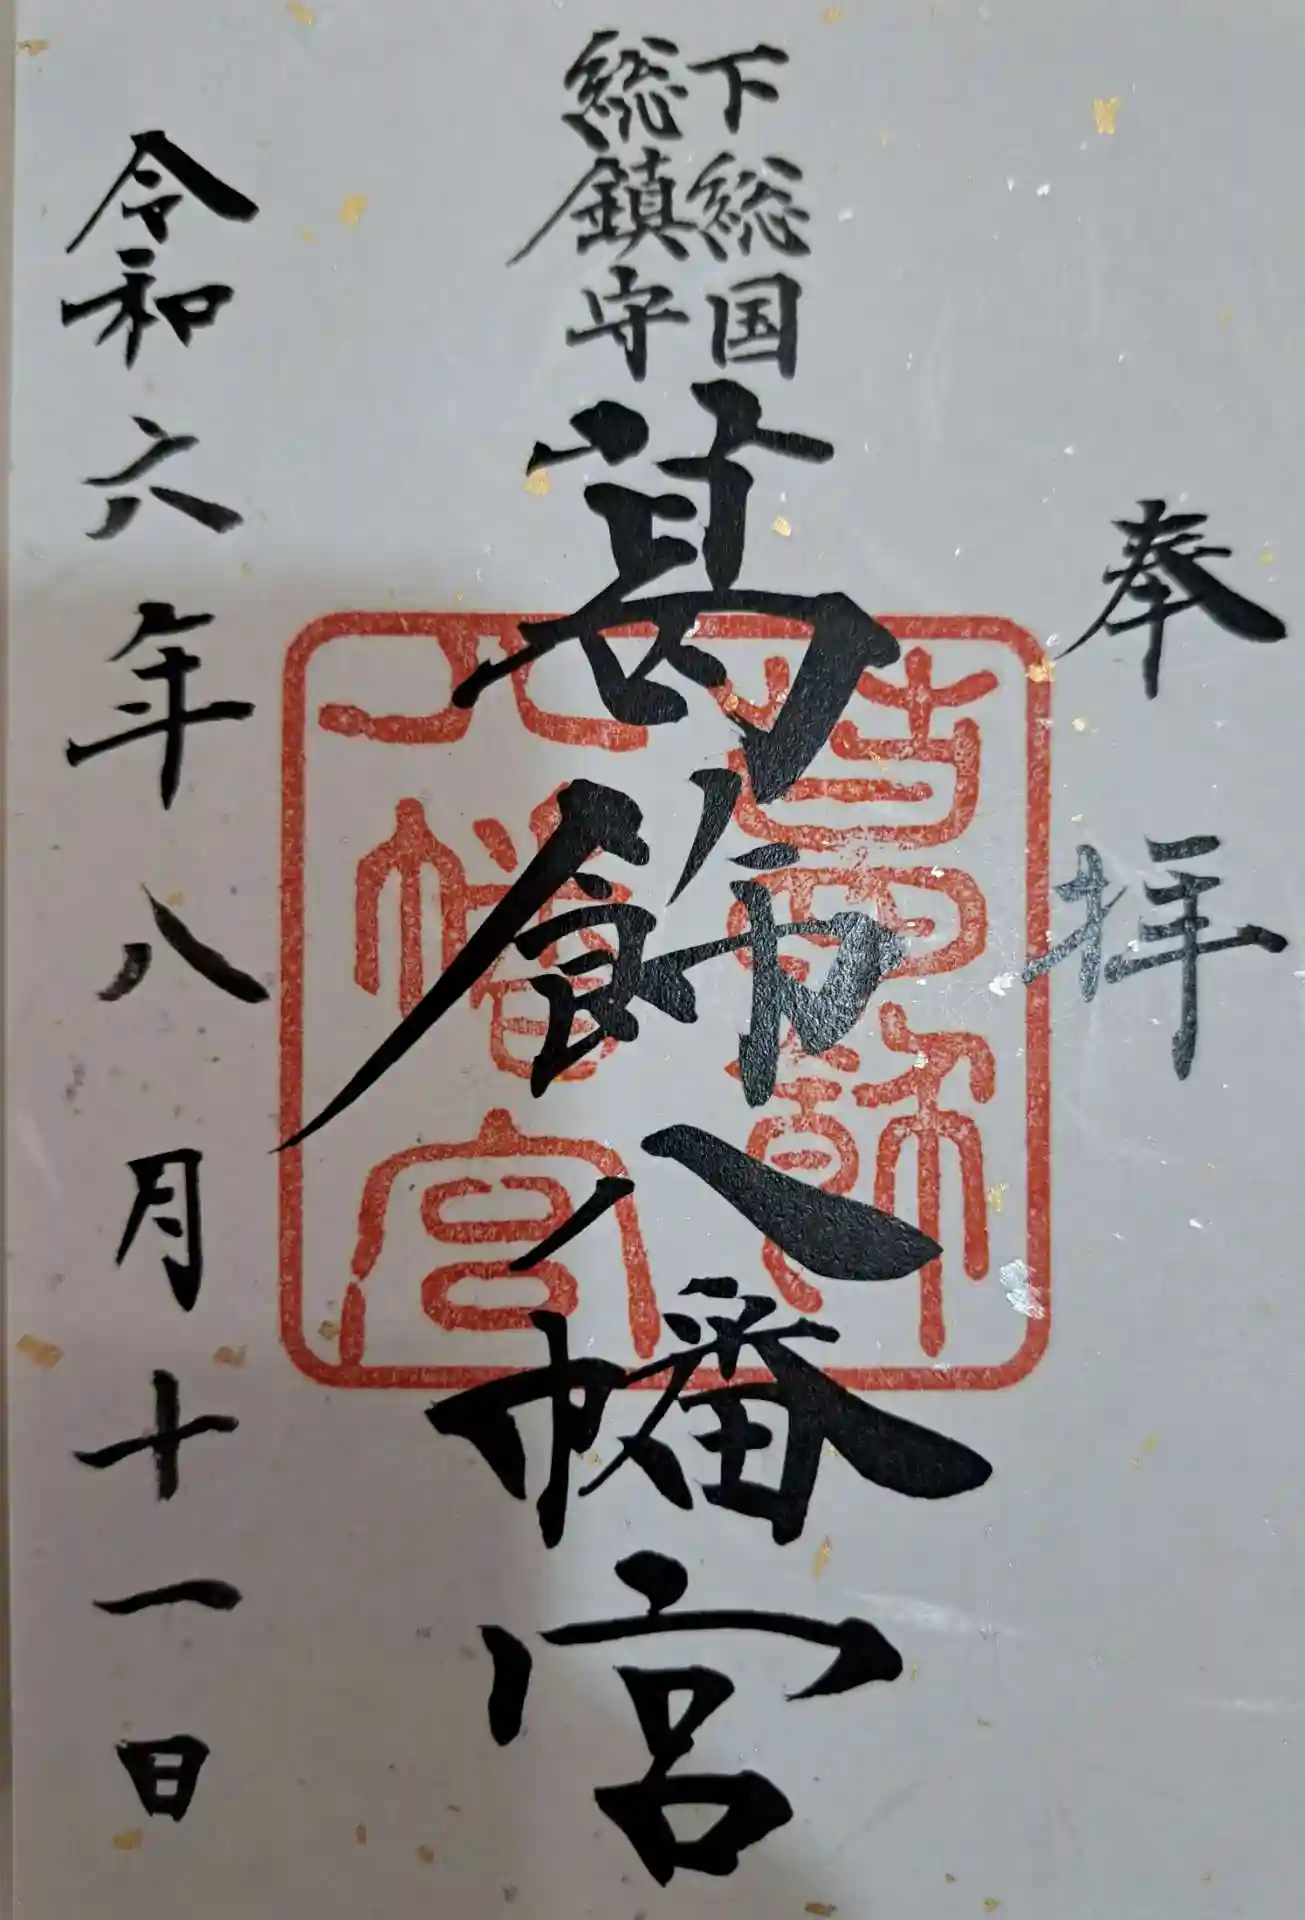 奉拝
下総国
総鎮守
葛飾八幡宮
葛飾
八幡宮
令和六年八月十一日